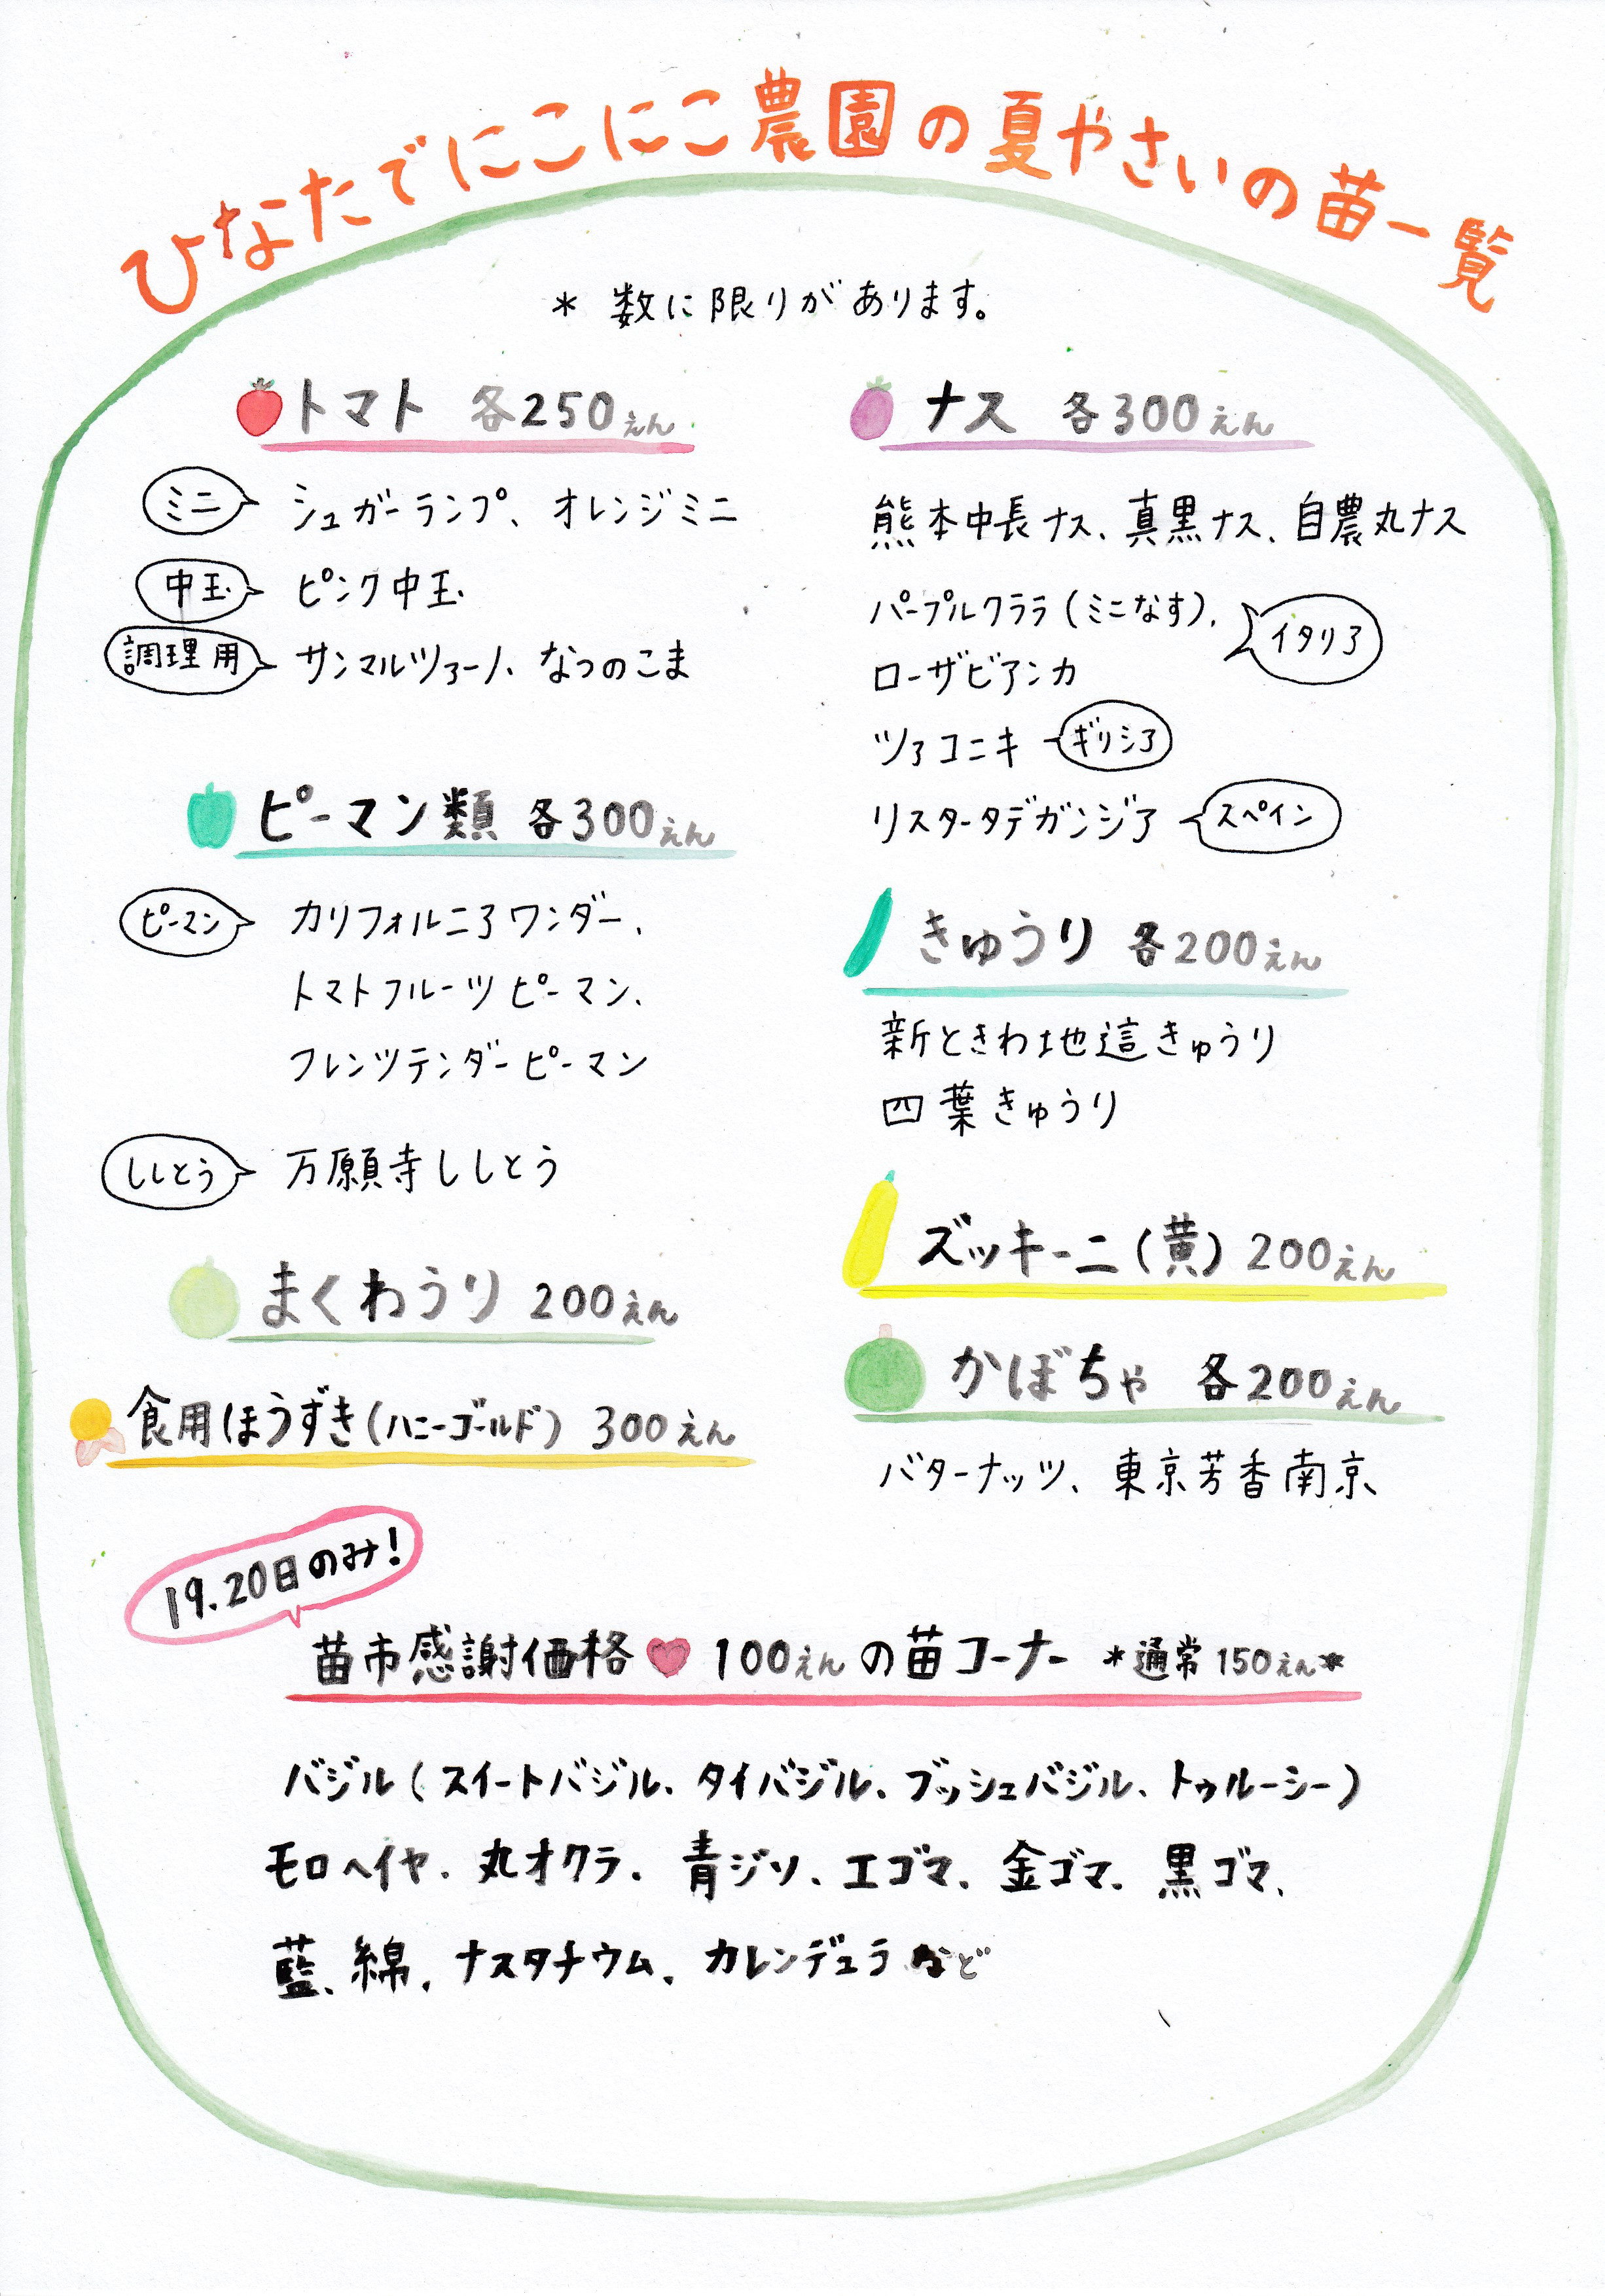 ひなたでにこにこ農園の夏やさいの苗一覧
* 数に限りがあります。
トマト 各250えん
ミニ シュガーランプ、オレンジミニ
中玉 ピンク中玉
調理用 サンマルツァーノ、なつのこま
ピーマン類 各300えん
ピーマン カリフォルニアワンダー、
トマトフルーツピーマン、
フレンツテンダーピーマン
ししとう 万願寺ししとう
まくわうり 200えん
食用ほうずき(ハニーゴールド) 300えん
ナス 各300えん
熊本中長ナス、真黒ナス、自農丸ナス
パープルクララ(ミニなす)、
ローザビアンカ
イタリア
ツァコニキ ギリシア
リスタータデガンジア スペイン
きゅうり 各200えん
新ときわ地這きゅうり
四葉きゅうり
ズッキーニ(黄) 200えん
かぼちゃ 各200えん
バターナッツ、東京芳香南京、
19.20日のみ!
苗市感謝価格♥100えんの苗コーナー *通常150えん*
バジル(スイートバジル、タイバジル、ブッシュバジル、トゥルーシー)
モロヘイヤ、丸オクラ、青ジソ、エゴマ、金ゴマ、黒ゴマ、
藍、綿、ナスタチウム、カレンデュラなど